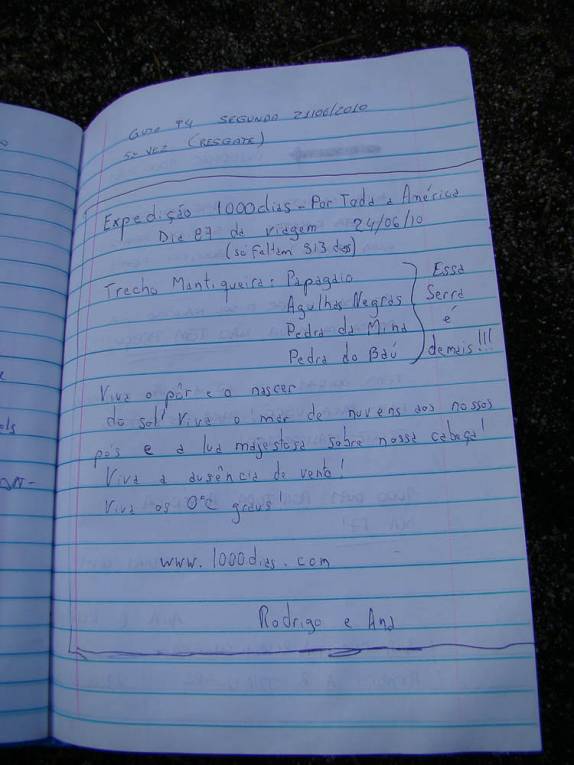 SEGUNDA 21/06/2010
5ª VEZ (RESGATE)
Expedição 1000dias - Por Toda a América
Dia 87 da viagem 24/06/10
(só faltam 913 dias)
Trecho Mantiqueira: Papagaio
Agulhas Negras
Pedra da Mina
Pedra do Baú
Essa
Serra
é
demais!!!
Viva o pôr e o nascer
do sol! Viva o mar de nuvens aos nossos
pés e a lua majestosa sobre nossa cabeça!
Viva a ausência de vento!
Viva os 0°C graus!
www.1000dias.com
Rodrigo e Ana